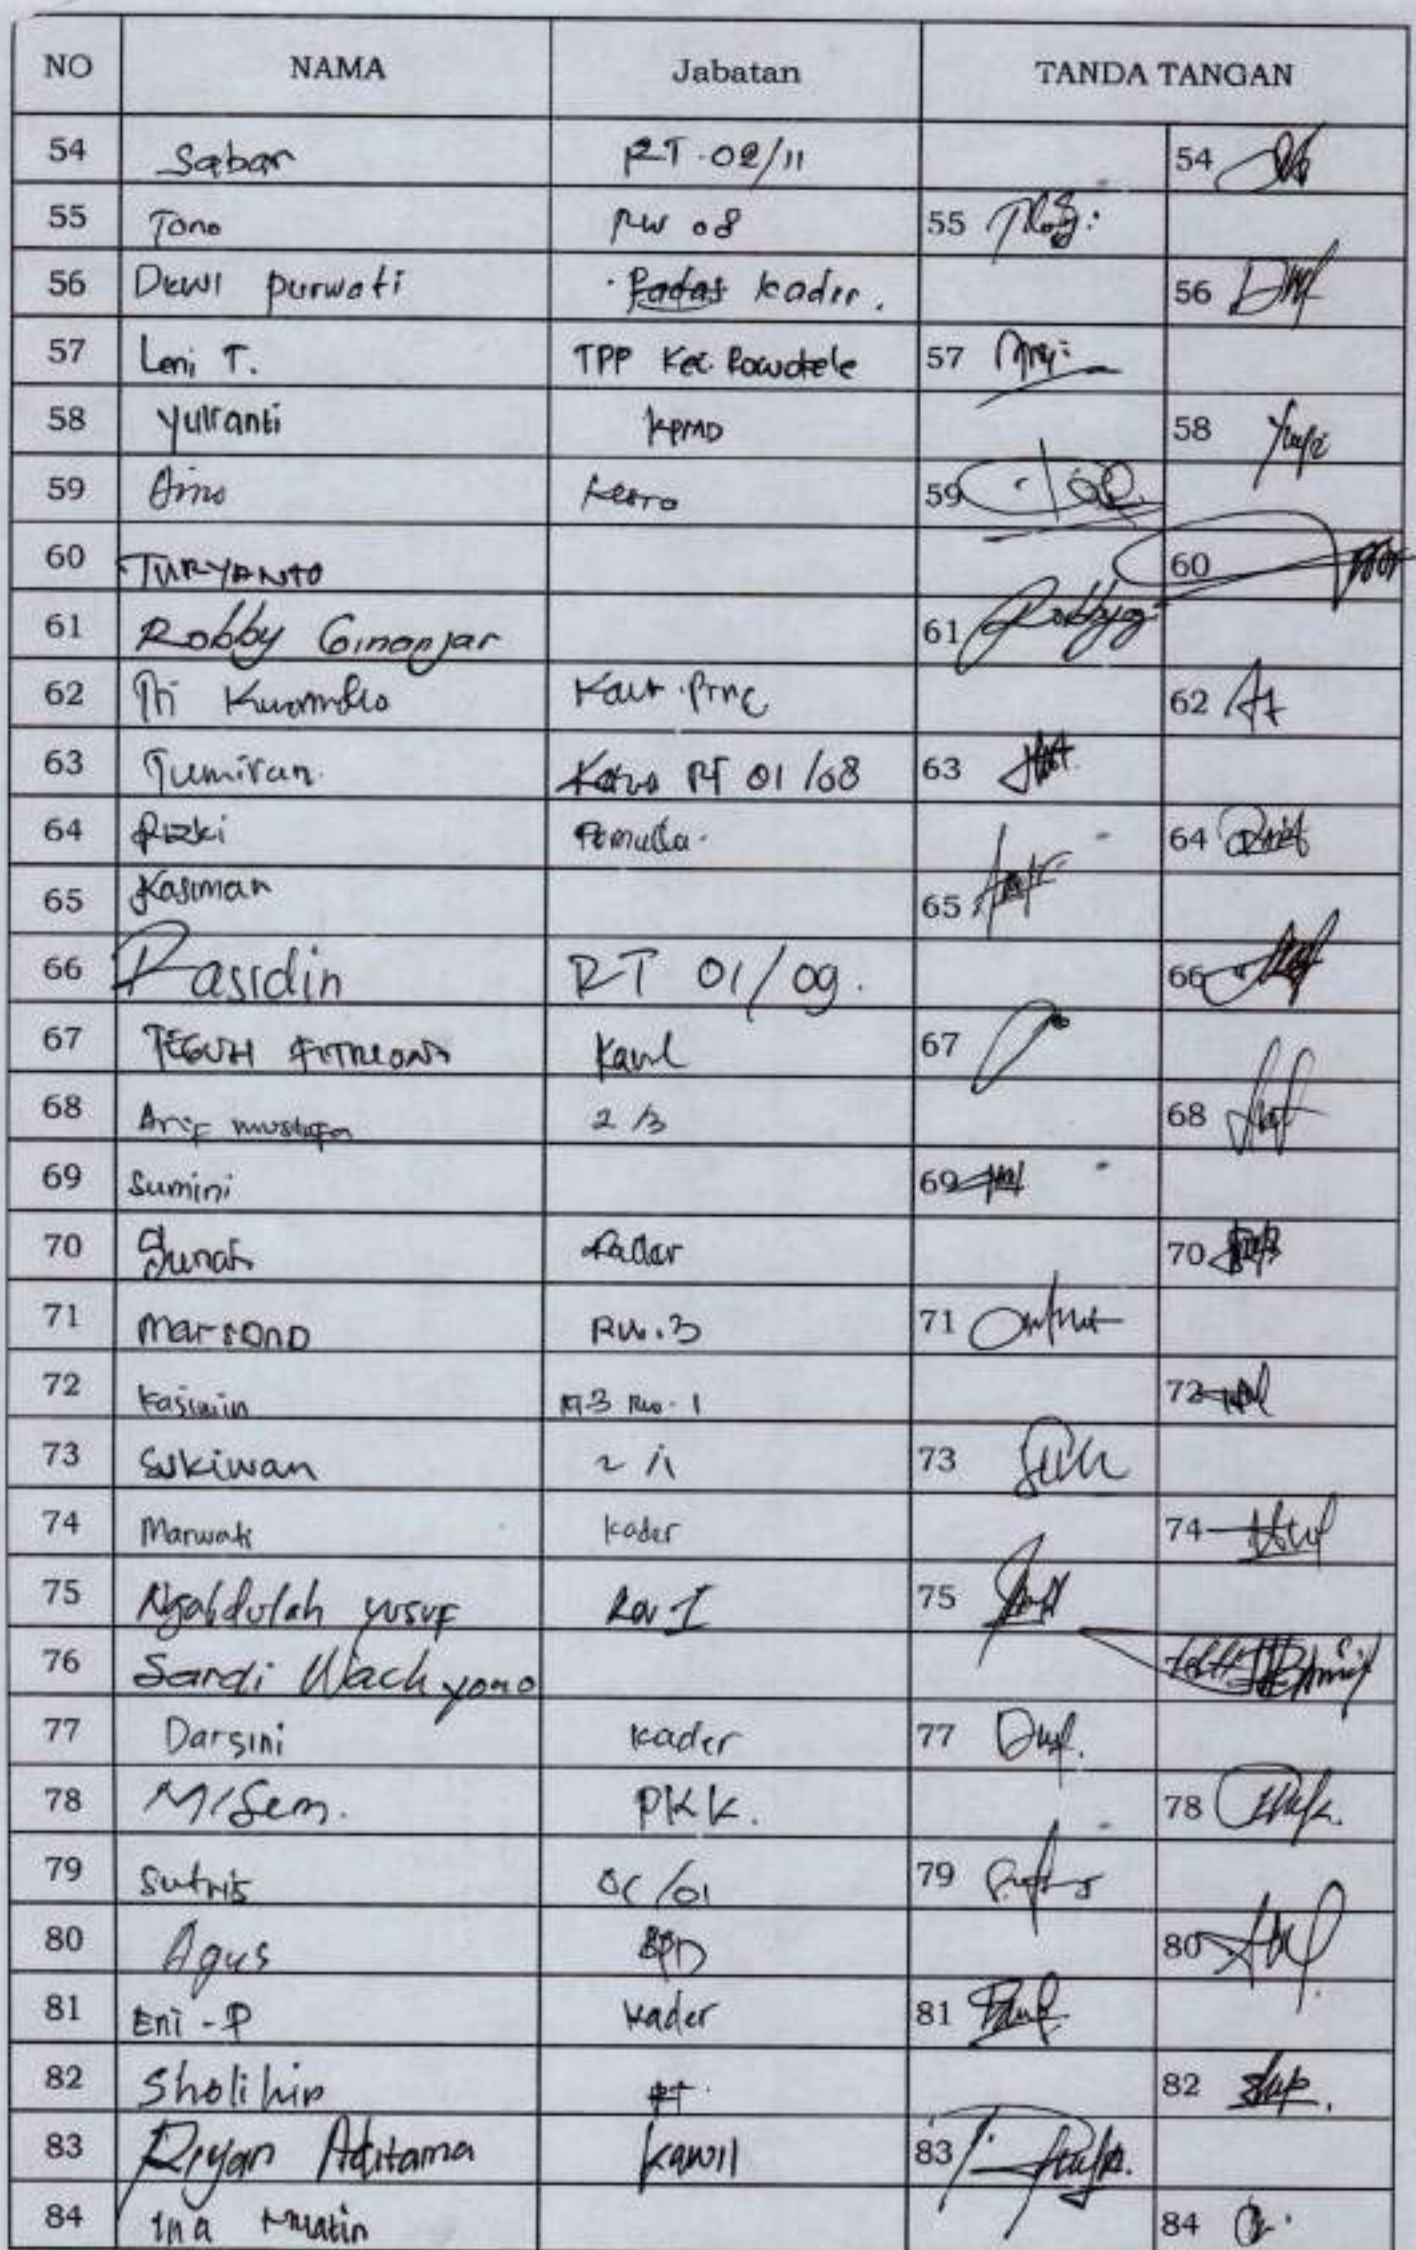 NO NAMA Jabatan TANDA TANGAN
54 Sabar RT. 02/11 54
55 Tono RW 08 55
56 Dewi purwati kader. 56
57 Leni T. TPP Kec. Rowokele 57
58 Yulianti KPMD 58
59 59
60 TURYANTO 60
61 Robby Ginanjar 61
62 Tri 62
63 Tumiran. RT 01/08 63
64 Rizki 64
65 Kasiman 65
66 Rasidin RT 01/09. 66
67 TEGUH 67
68 Arif mustofa 2/3 68
69 Sumini 69
70 Kader 70
71 Marsono RW.3 71
72 Kasimin 72
73 Sukiwan 2/1 73
74 Marwati kader 74
75 Ngabdulah Yusuf 75
76 Sardi Wachyono
77 Darsini kader 77
78 Misem. PKK. 78
79 Sutris 79
80 Agus BPD 80
81 Eni - P kader 81
82 Sholihin RT. 82
83 Riyan Aditama Kawil 83
84 Ina 84